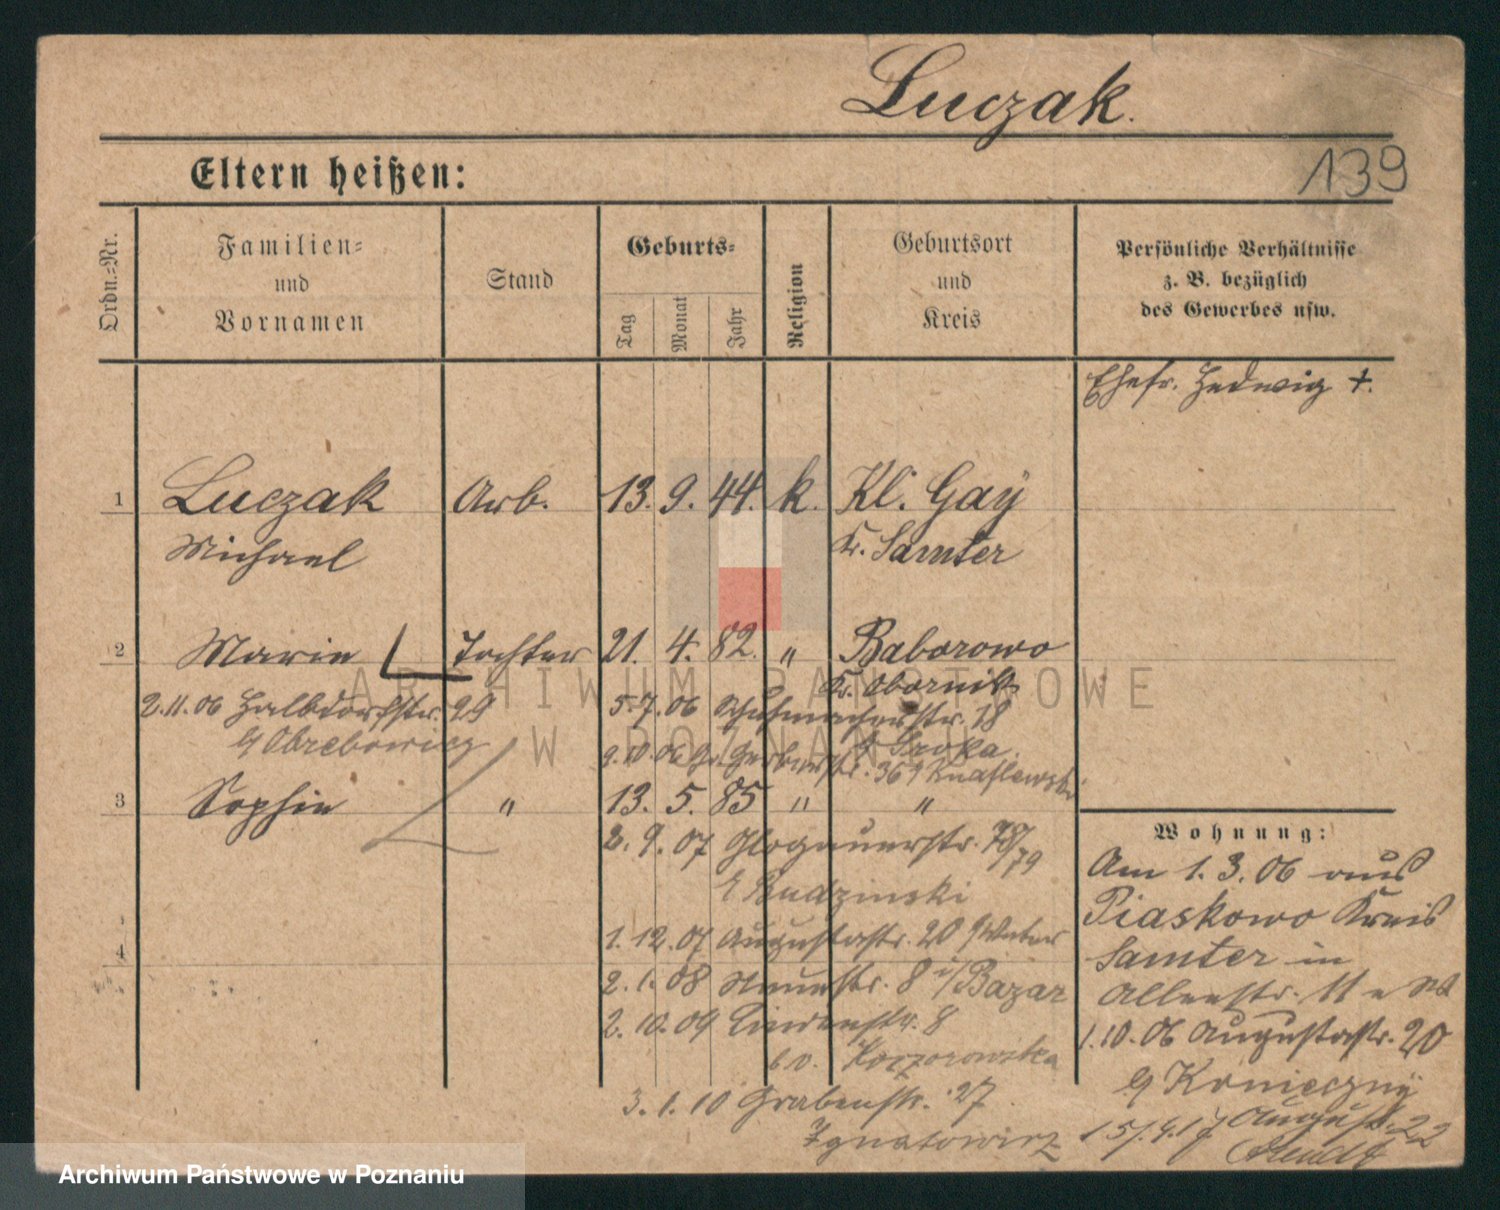 Luczak.
139
Eltern heißen:
Ordn.=Nr.
Familien=
und
Vornamen
Stand
Geburts=
Tag
Monat
Jahr
Religion
Geburtsort
und
Kreis
Persönliche Verhältnisse
z. B. bezüglich
des Gewerbes usw.
Ehefr. Hedwig +.
1 Luczak Arb. 13. 9. 44. k. Kl. Gay
Michael Kr. Samter
2 Marie Tochter 21. 4. 82. " Baborowo
Kr. Obornik
2.11.06 Halbdorfstr. 29
Obrebowicz
5.7.06 Schuhmacherstr. 18
Sroka
9.10.06 Gr. Gerberstr. 36
3 Sophie " 13. 5. 85 " "
2. 9. 07 Glogauerstr. 78/79
Budzinski
1. 12. 07 Augustastr. 20
4
2. 1. 08 Neuestr. 8 i/Bazar
2. 10. 09 Lindenstr. 8
b. v. Koczorowska
3. 1. 10 Grabenstr. 27
Ignatowicz
Wohnung:
Am 1. 3. 06 aus
Piaskowo Kreis
Samter in
1.10.06 Augustastr. 20
Konieczny
August. 22
ARCHIWUM PAŃSTWOWE
W POZNANIU
Archiwum Państwowe w Poznaniu